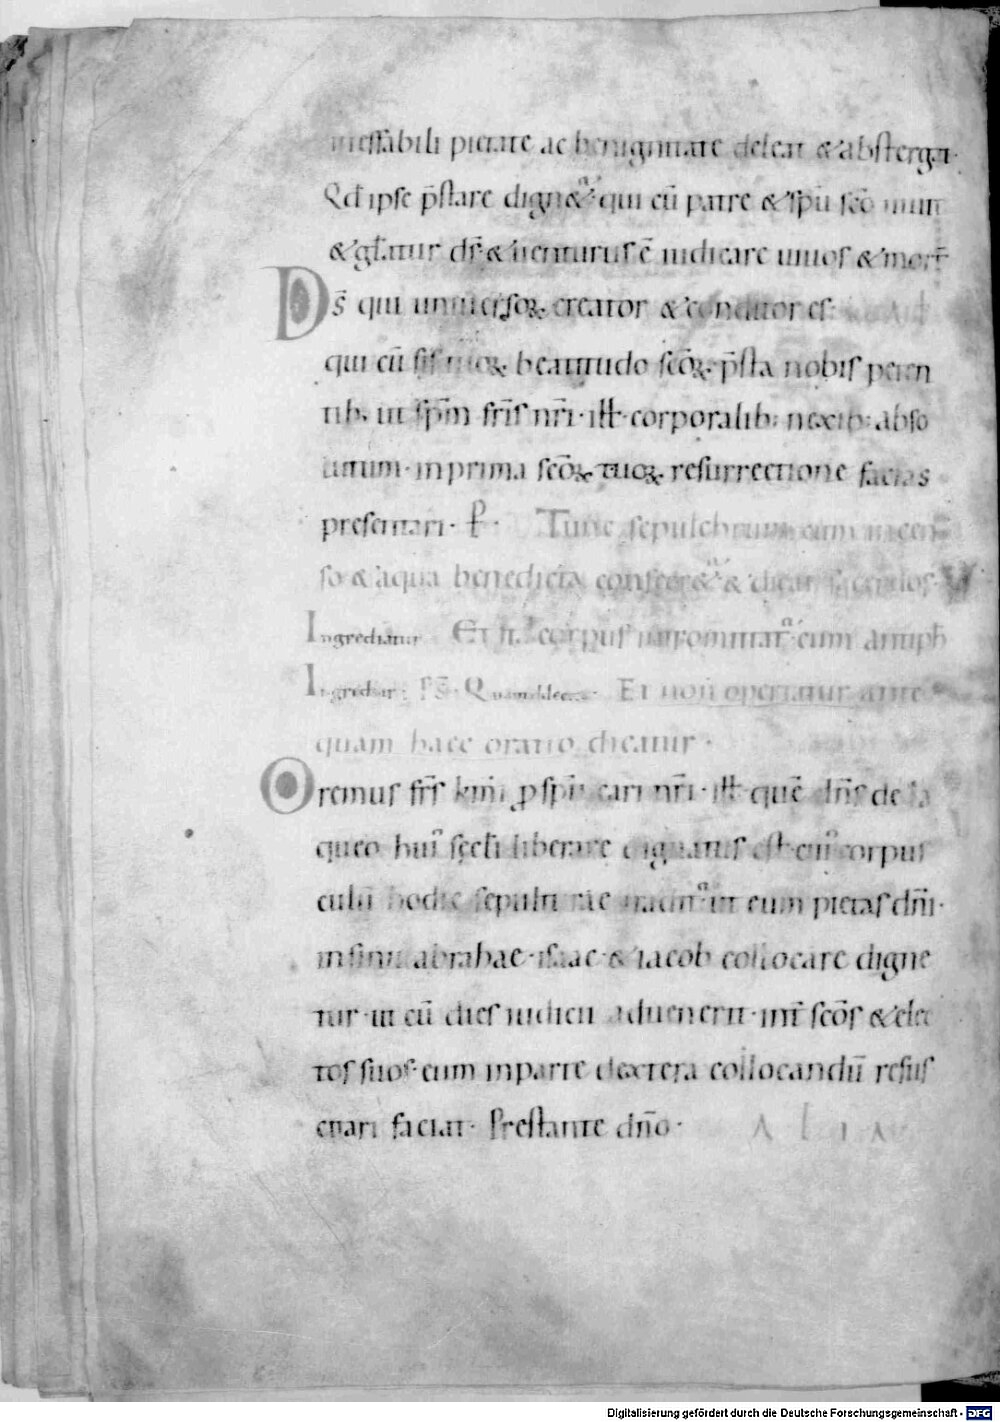 ineffabili pietate ac benignitate deleat & abstergat.
Qd̄ ipse p̄stare dign&ur qui cū patre & sp̄u sc̄o uiuit
& gl̄atur ds̄ & uenturus ē iudicare uiuos & mort̄
Ds̄ qui uniuersoꝝ creator & conditor es
qui cū sis tuoꝝ beatitudo sc̄oꝝ p̄sta nobis peten
tib; ut sp̄m fr̄is nr̄i ill̄ corporalib; nexib; abso
lutum in prima sc̄oꝝ tuoꝝ resurrectione facias
presentari. P. Tunc sepulchrum cum incen
so & aqua benedicta consecr&ur & dicat sacerdos
Ingrediatur Et tc̄ corpus intromittat̄ cum antiph̄
Ingrediar: PS̄. Quam dilecta. Et non operiatur ante
quam haec oratio dicatur.
Oremus fr̄s km̄i ꝓ sp̄u cari nr̄i ill̄ quē dn̄s de la
queo hui' sc̄li liberare dignatus est cui' corpus
culū hodie sepulturae tradit̄ ut eum pietas dn̄i.
in sinu abrahae isaac & iacob collocare digne
tur ut cū dies iudicii aduenerit int̄ sc̄os & elec
tos suos eum in parte dextera collocandū resus
citari faciat. Prestante dn̄o. ALIA
Digitalisierung gefördert durch die Deutsche Forschungsgemeinschaft - DFG